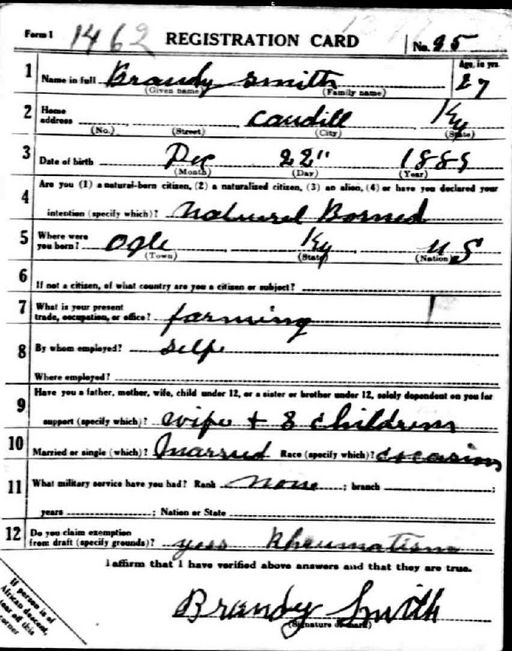 Form 1 1462 REGISTRATION CARD No. 95
Age, in yrs.
1 Name in full Brandy Smith 27
(Given name) (Family name)
2 Home address Caudill Ky
(No.) (Street) (City) (State)
3 Date of birth Dec 22" 1889
(Month) (Day) (Year)
4 Are you (1) a natural-born citizen, (2) a naturalized citizen, (3) an alien, (4) or have you declared your
intention (specify which)? Natural Borned
5 Where were you born? Ogle Ky US
(Town) (State) (Nation)
6 If not a citizen, of what country are you a citizen or subject?
7 What is your present trade, occupation, or office? farming
8 By whom employed? self
Where employed?
9 Have you a father, mother, wife, child under 12, or a sister or brother under 12, solely dependent on you for
support (specify which)? wife + 8 childrens
10 Married or single (which)? Married Race (specify which)?
11 What military service have you had? Rank none ; branch ;
years ; Nation or State
12 Do you claim exemption from draft (specify grounds)? yess Rheumatism
I affirm that I have verified above answers and that they are true.
Brandy Smith
(Signature or mark)
If person is of
African descent,
tear off this
corner